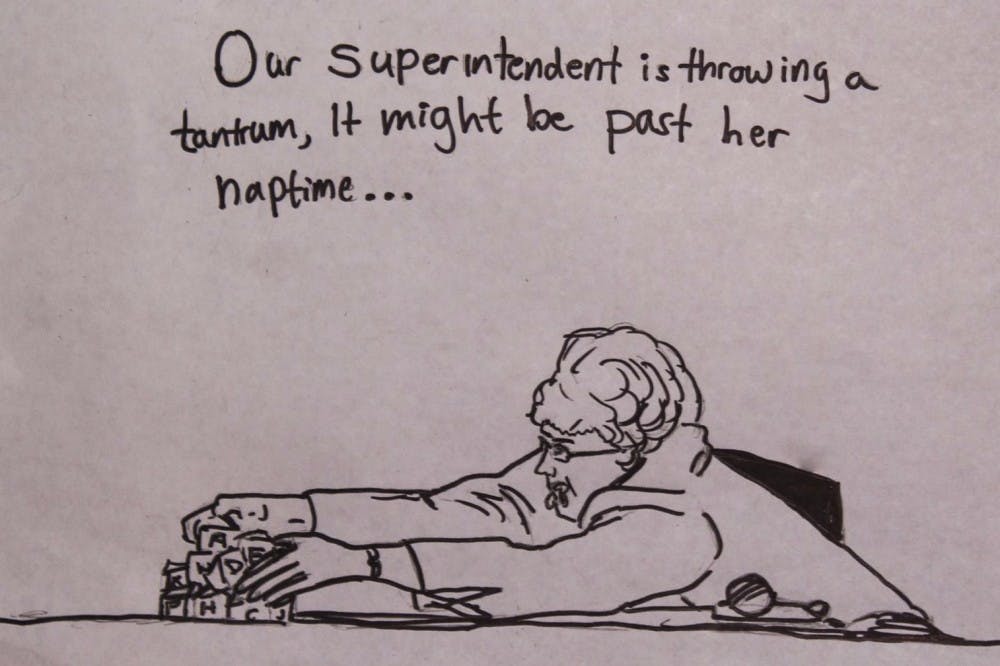 Our superintendent is throwing a
tantrum, It might be past her
naptime...
A E
K N D
P H C J